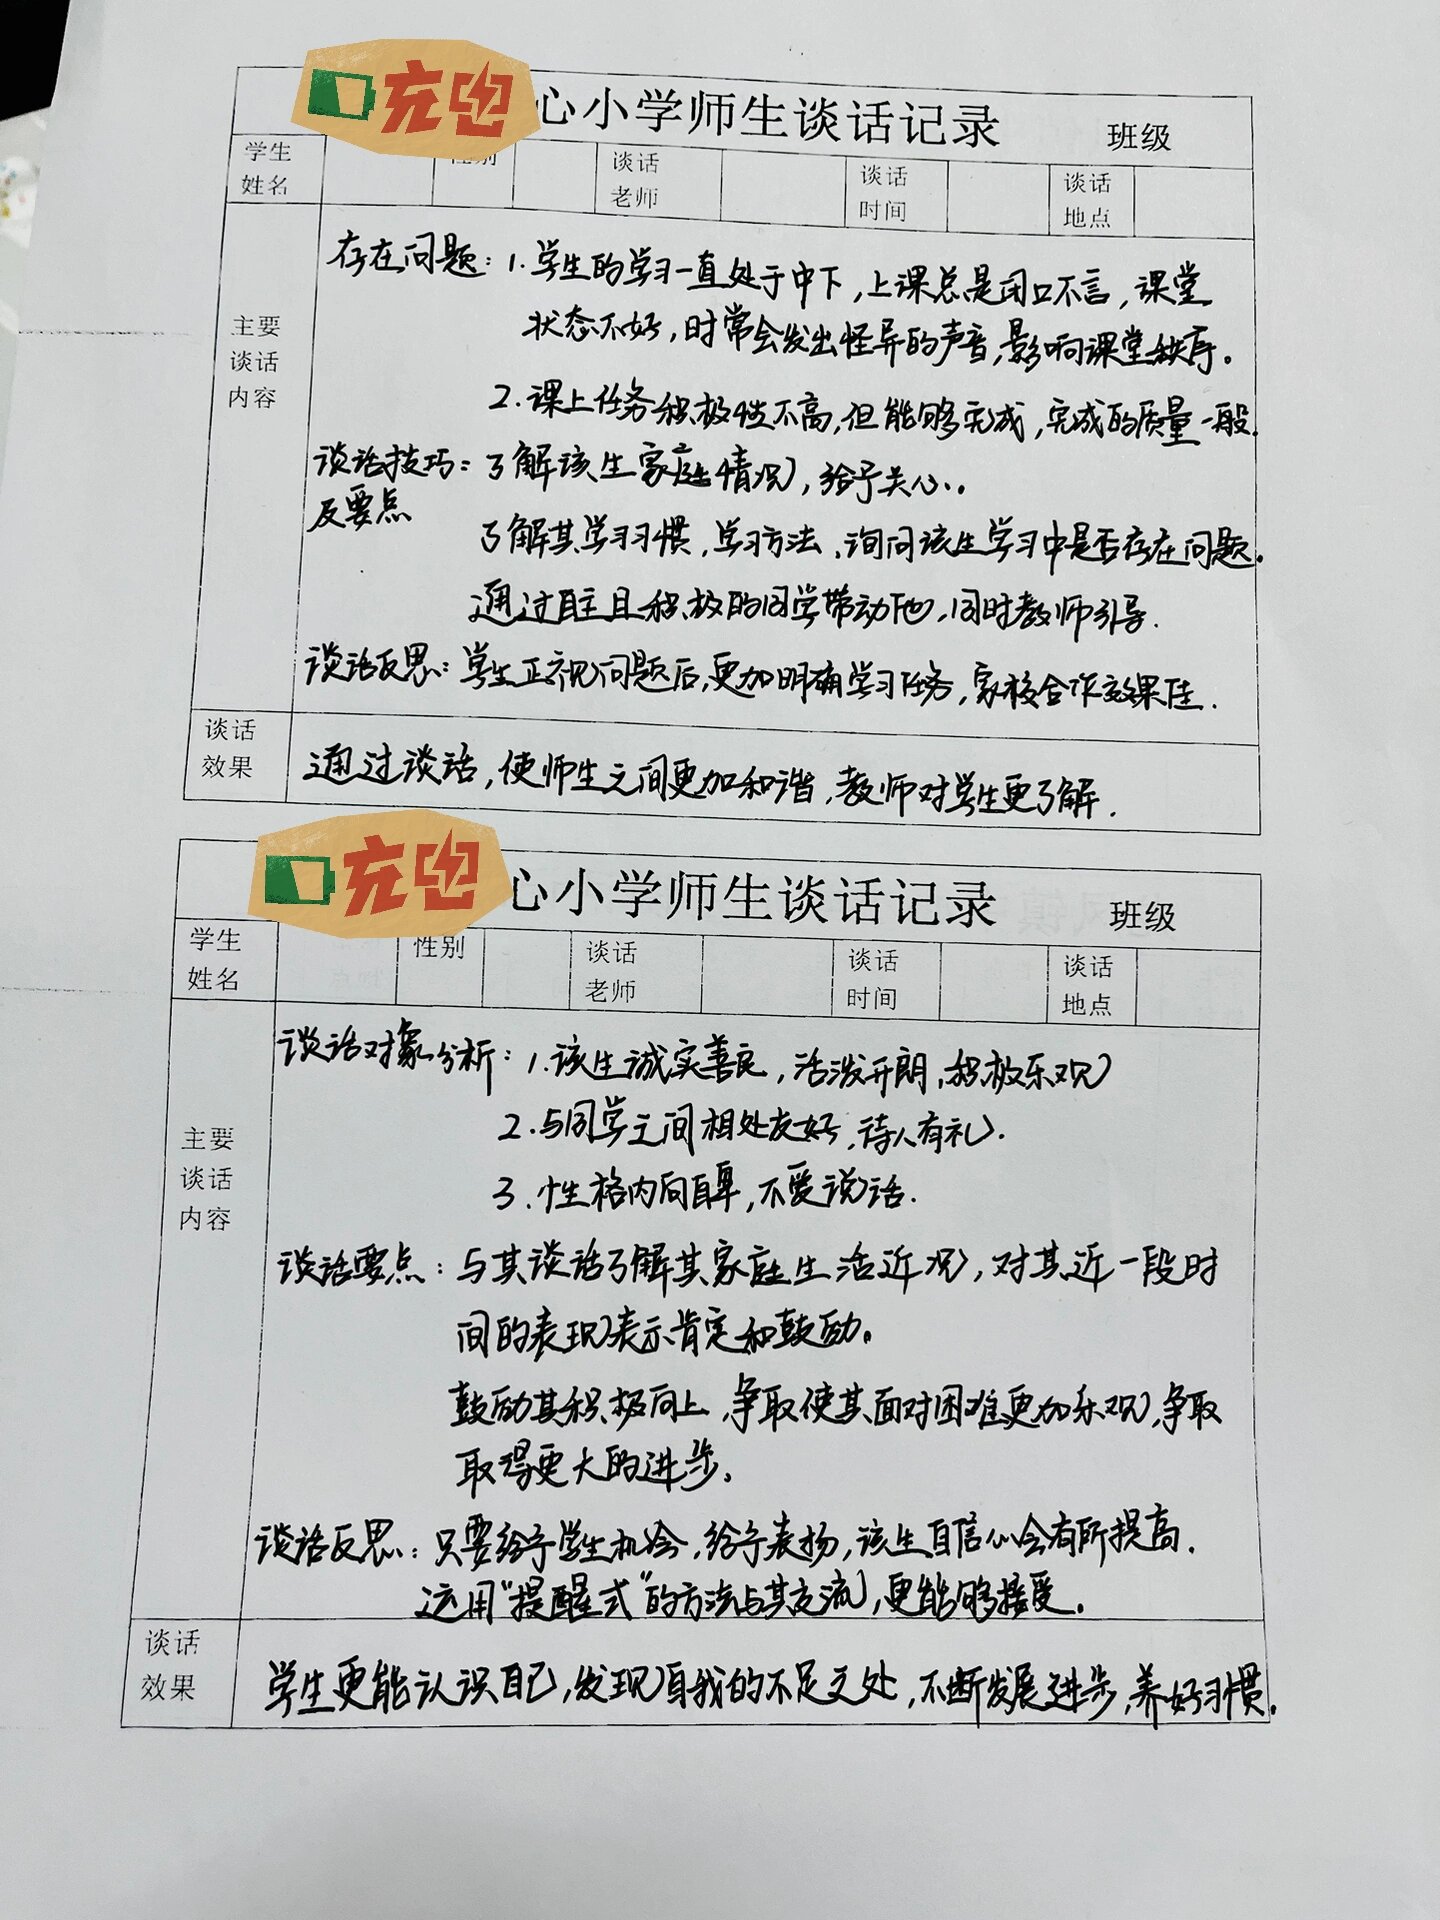 充电
心小学师生谈话记录 班级
学生姓名 性别 谈话老师 谈话时间 谈话地点
主要谈话内容
存在问题：1.学生的学习一直处于中下，上课总是闭口不言，课堂
状态不好，时常会发出怪异的声音，影响课堂秩序。
2.课上任务积极性不高，但能够完成，完成的质量一般。
谈话技巧：了解该生家庭情况，给予关心。
及要点
了解其学习习惯，学习方法，询问该生学习中是否存在问题。
通过自主且积极的同学带动他，同时教师引导.
谈话反思：学生正视问题后，更加明确学习任务，家校合作效果佳.
谈话效果
通过谈话，使师生之间更加和谐，教师对学生更了解.
充电
心小学师生谈话记录 班级
学生姓名 性别 谈话老师 谈话时间 谈话地点
主要谈话内容
谈话对象分析：1.该生诚实善良，活泼开朗，积极乐观
2.与同学之间相处友好，待人有礼.
3.性格内向自卑，不爱说话.
谈话要点：与其谈话了解其家庭生活近况，对其近一段时
间的表现表示肯定和鼓励。
鼓励其积极向上，争取使其面对困难更加乐观，争取
取得更大的进步。
谈话反思：只要给予学生机会，给予表扬，该生自信心会有所提高.
运用“提醒式”的方法与其交流，更能够接受。
谈话效果
学生更能认识自己，发现自我的不足之处，不断发展进步，养好习惯。